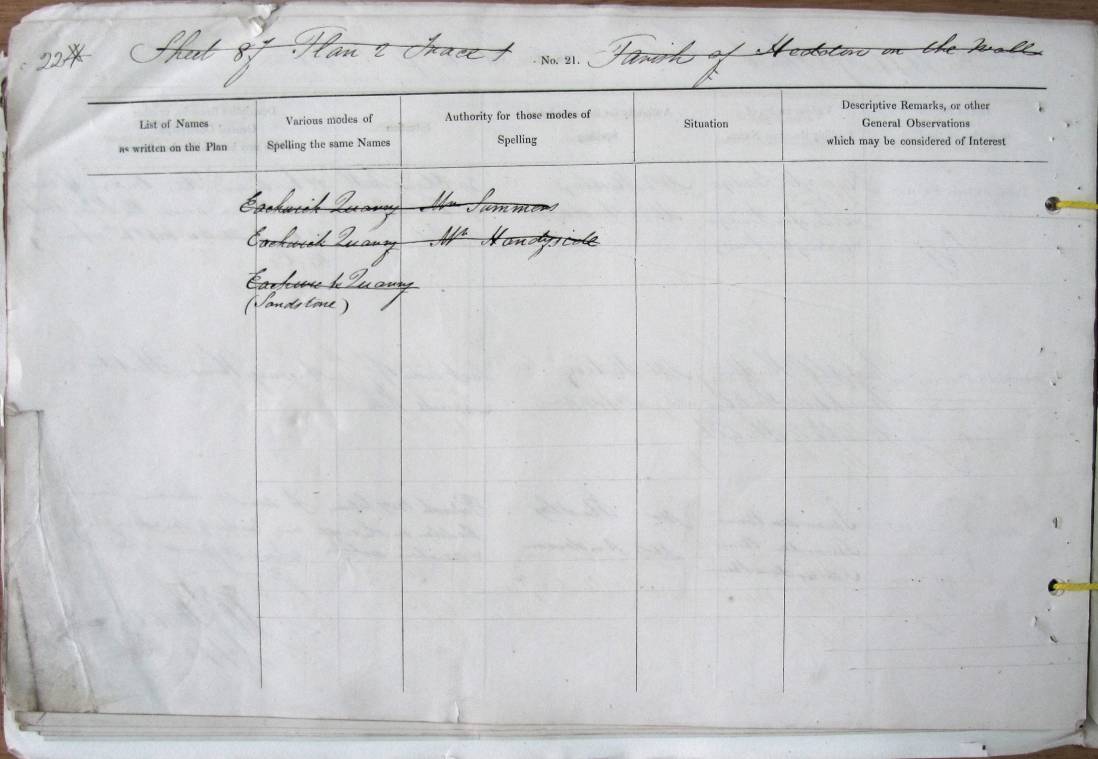 224 Sheet 87 Plan 2 Trace 1 No. 21. Parish of Heddon on the Wall
List of Names
as written on the Plan
Various modes of
Spelling the same Names
Authority for those modes of
Spelling
Situation
Descriptive Remarks, or other
General Observations
which may be considered of Interest
Eachwick Quarry Mr Summers
Eachwick Quarry Mr Handyside
Eachwick Quarry
(Sandstone)